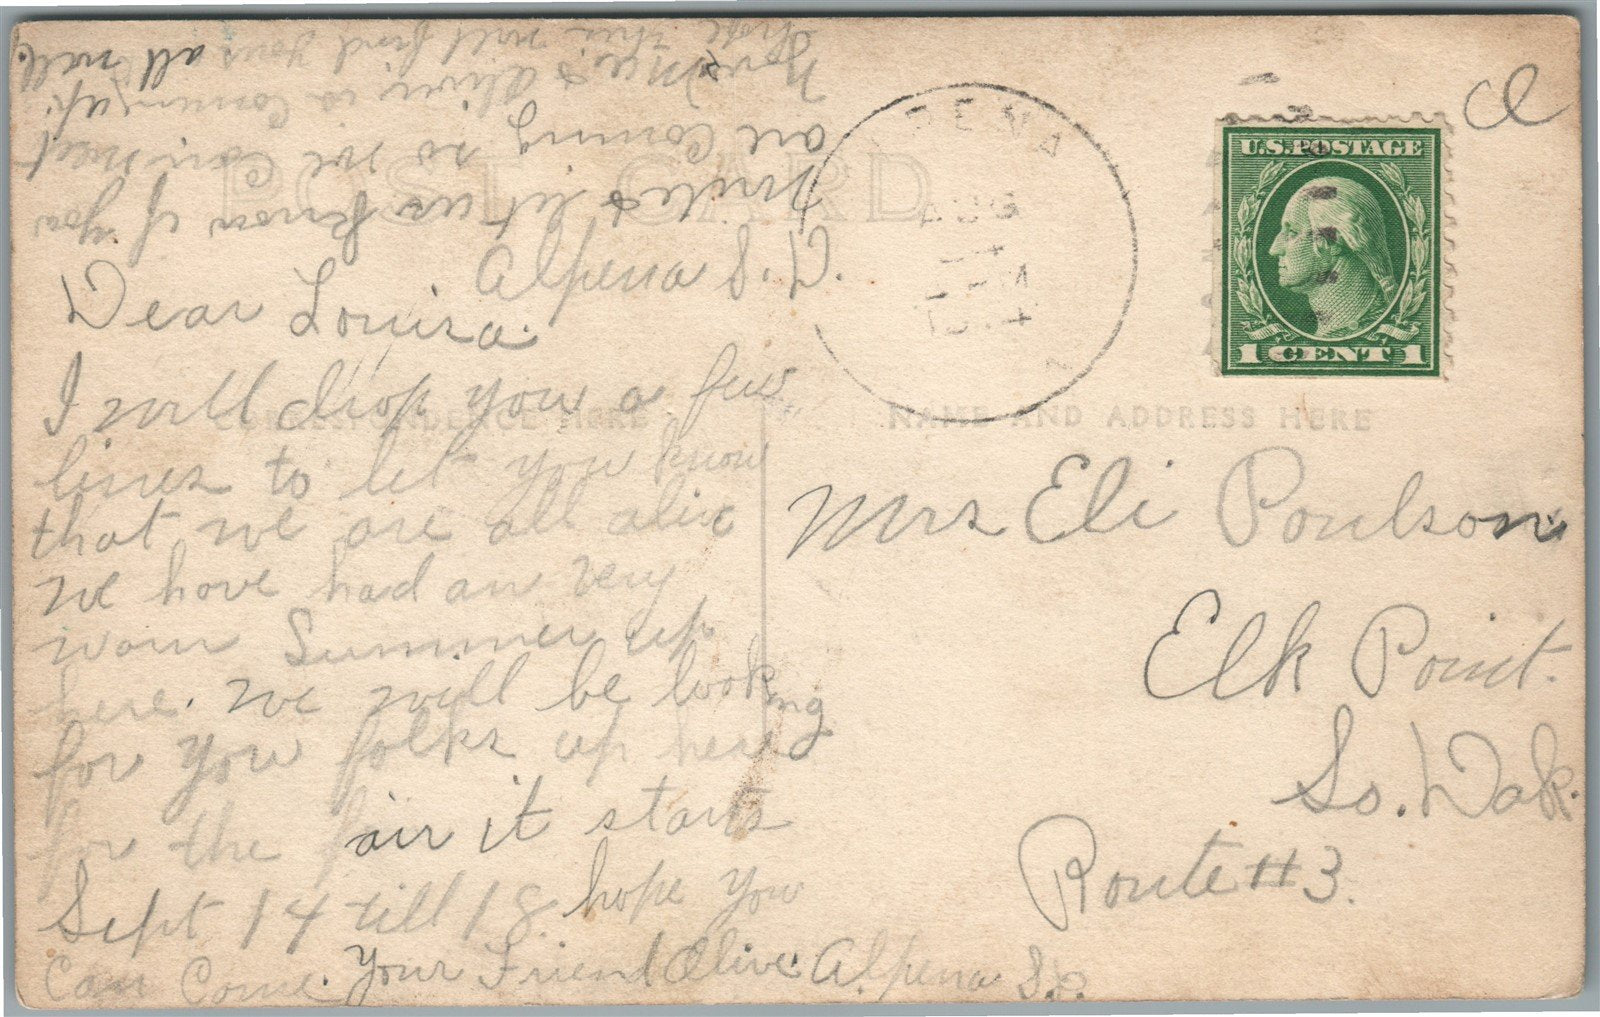 POST CARD
Alpena S.D.
Dear Louisa.
I will drop you a few
CORRESPONDENCE HERE
lines to let you know
that we are all alive
we have had an very
worm Summer up
here. we will be looking
for you folks up here
for the fair it starts
Sept 14 till 18. hope you
can come. Your Friend Olive. Alpena S.D.
write & let us know if you
are coming so we can meet
you. Mae & Oliver is coming up.
Hope this will find you all well.
PENA
AUG
14
PM
1914
U.S. POSTAGE
1 CENT 1
Cl
NAME AND ADDRESS HERE
Mrs Eli Poulson
Elk Point.
So. Dak.
Route #3.